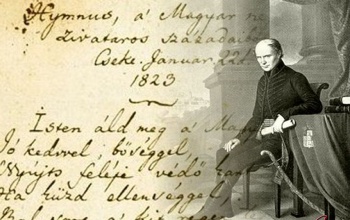 Hymnus, a' Magyar ne
zivataros századaibó
Cseke. Januar. 22d.
1823
Isten áld meg a' Magya
Jó kedvvel, bőséggel
Nyújts feléje védő kart
Ha küzd ellenséggel